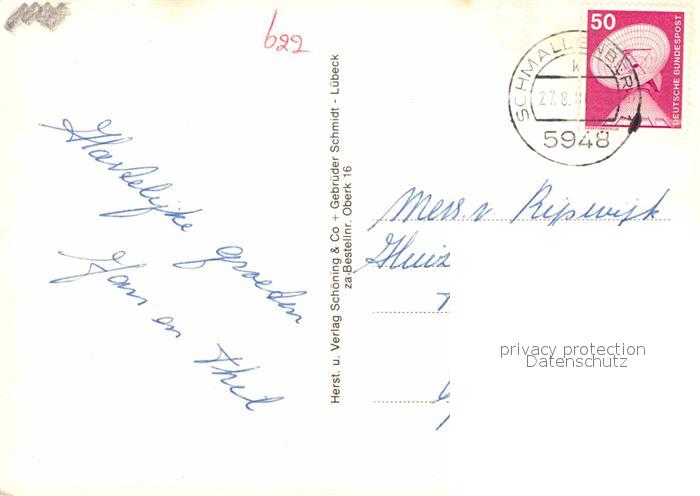 b22
50
DEUTSCHE BUNDESPOST
SCHMALLENBERG 1
k
27.8.
5948
Hartelijke groeten
Jan en Thil
Herst. u. Verlag Schöning & Co + Gebrüder Schmidt - Lübeck
za-Bestellnr. Oberk 16
Mevr. v Rijswijk
Huiz
privacy protection
Datenschutz